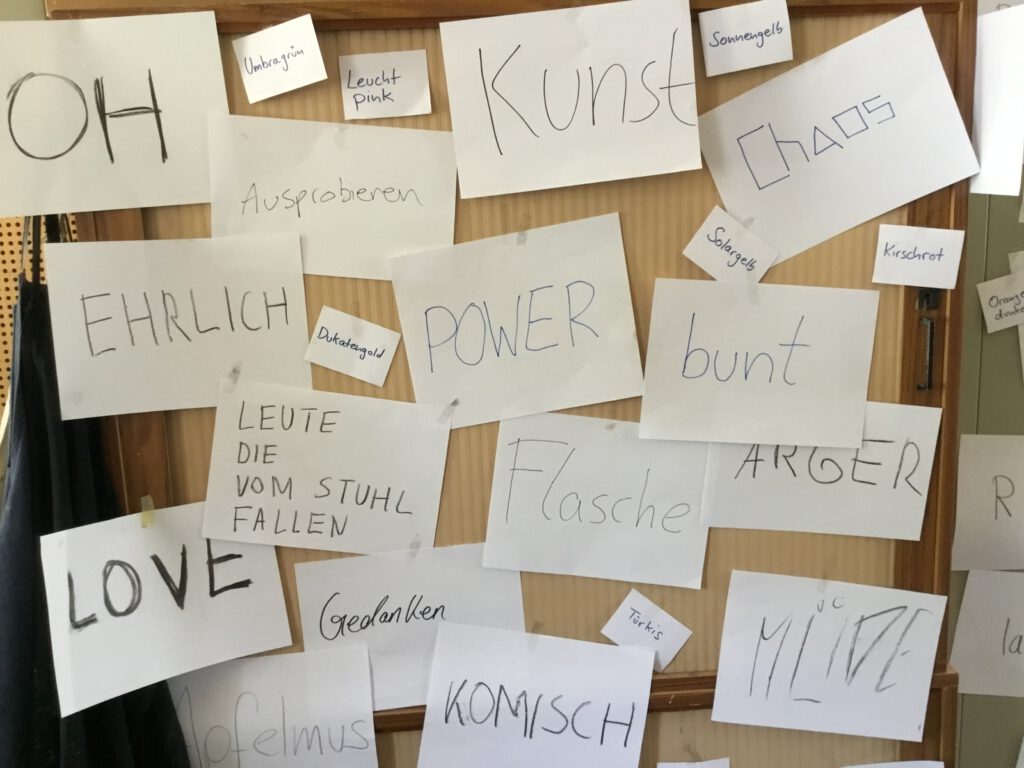 OH
Umbragrün
Leucht
pink
Kunst
Sonnengelb
Chaos
Ausprobieren
Solargelb
Kirschrot
EHRLICH
Dukatengold
POWER
bunt
Orange
dunke
LEUTE
DIE
VOM STUHL
FALLEN
Flasche
ARGER
R
LOVE
Gedanken
Türkis
MÜDE
la
Apfelmus
KOMISCH